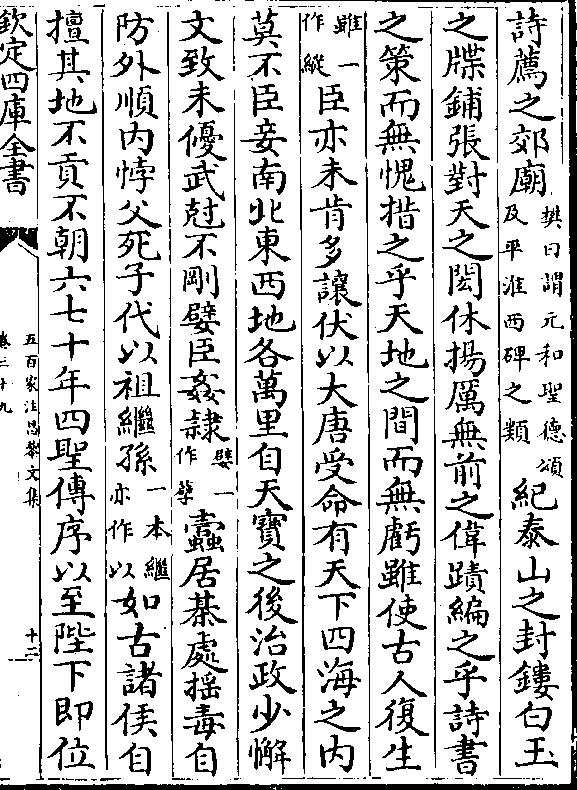 詩薦之郊廟樊曰謂元和聖德頌及平淮西碑之類紀泰山之封鏤白玉
之牒鋪張對天之閎休揚厲無前之偉蹟編之乎詩書
之策而無愧措之乎天地之間而無虧雖使古人復生
雖一作縱臣亦未肯多讓伏以大唐受命有天下四海之內
莫不臣妾南北東西地各萬里自天寶之後治政少懈
文致未優武尅不剛嬖臣姦隷嬖一作孽蠧居棊處揺毒自
防外順内悖父死子代以祖繼孫一本繼亦作以如古諸侯自
擅其地不貢不朝六七十年四聖傳序以至陛下即位
欽定四庫全書
五百家注昌黎文集
卷三十九
十二